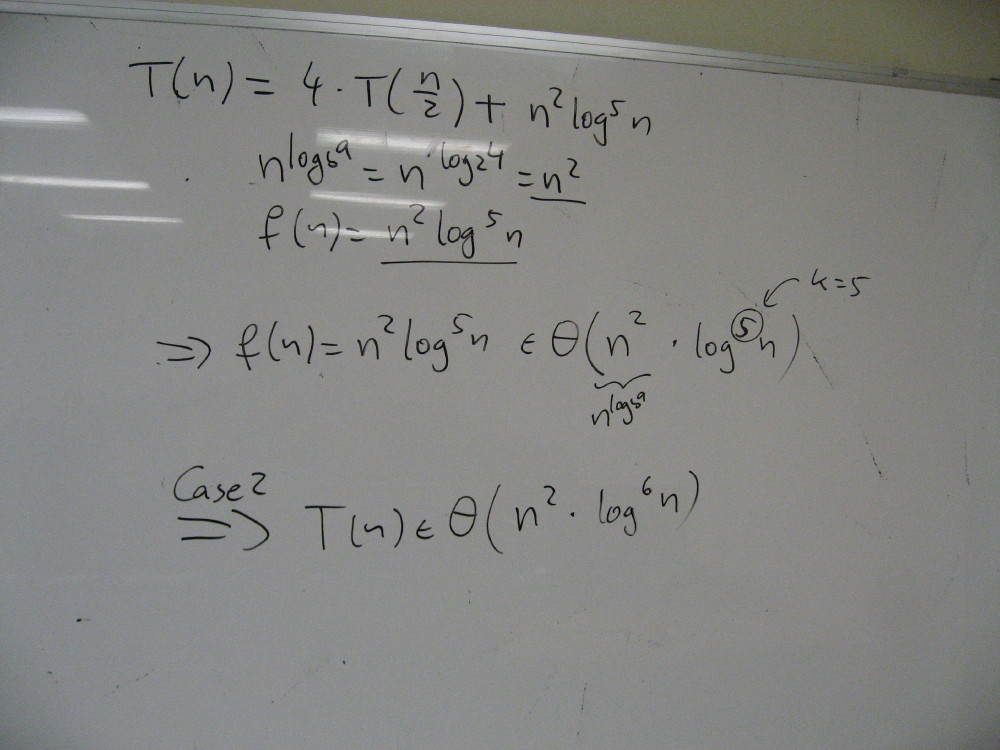 T(n) = 4 · T(n/2) + n² log⁵ n
n^(log_b a) = n^(log_2 4) = n²
f(n) = n² log⁵ n
k=5
⇒ f(n) = n² log⁵ n ∈ θ(n² · log⁵ n)
n^(log_b a)
Case 2
⇒ T(n) ∈ θ(n² · log⁶ n)